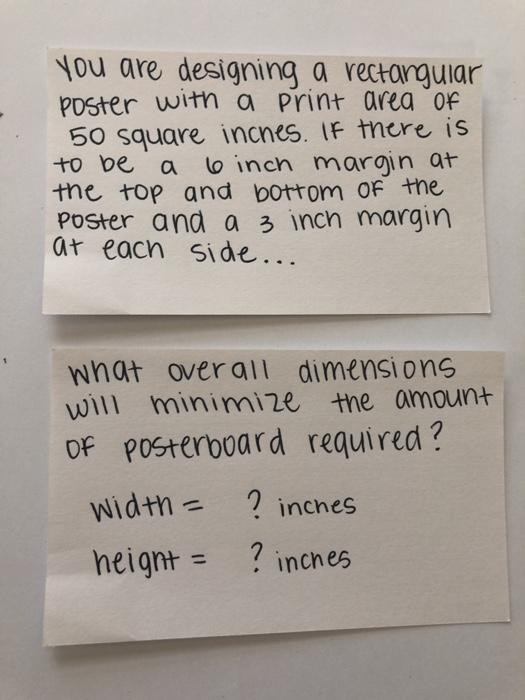 You are designing a rectangular
poster with a print area of
50 square inches. If there is
to be a 6 inch margin at
the top and bottom of the
poster and a 3 inch margin
at each side...
what overall dimensions
will minimize the amount
of posterboard required?
width = ? inches
height = ? inches